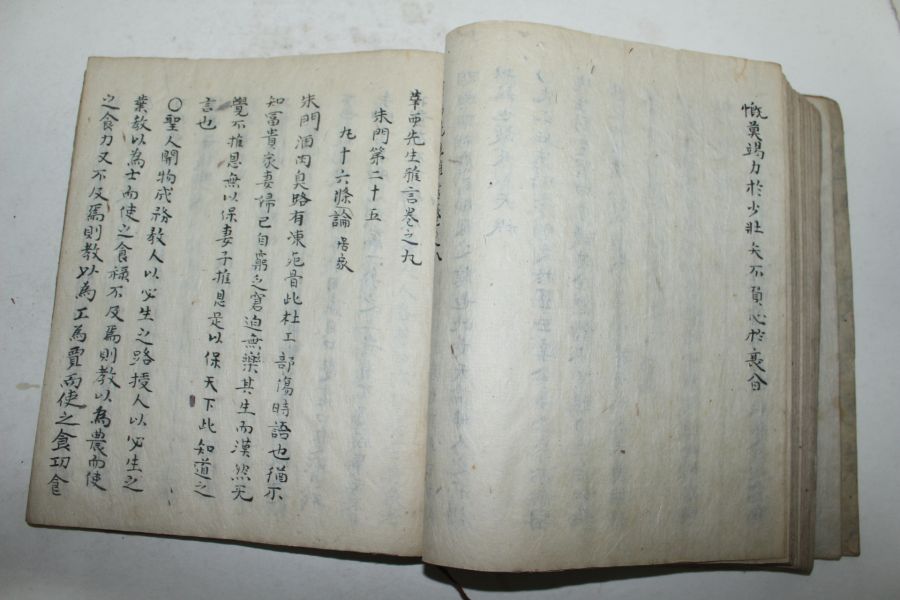 慨莫竭力於少壯矢不負心於衰
華西先生雅言卷之九
朱門第二十五
九十六條 論居家
朱門酒肉臭路有凍死骨此杜工部傷時語也猶不
知富貴家妻婦已自窮乏窘迫無樂其生而漠然无
覺不推恩無以保妻子推恩足以保天下此知道之
言也
○聖人開物成務教人以必生之路授人以必生之
業教以為士而使之食祿不及焉則教以為農而使
之食力又不及焉則教以為工為賈而使之食功食